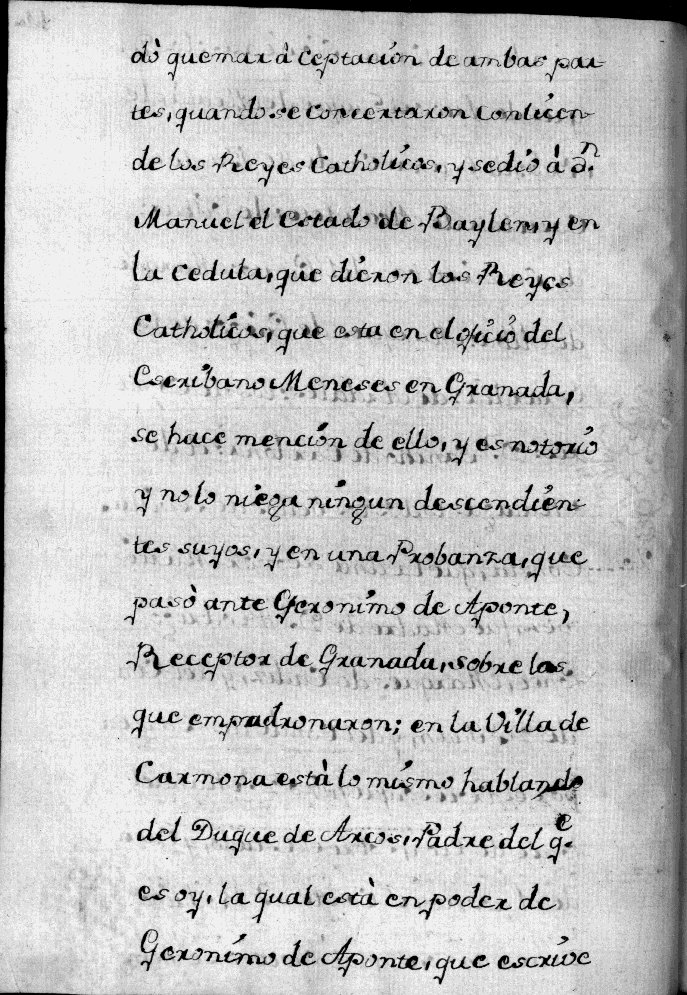 dò quemar à ceptación de ambas par-
tes, quando se concertaron con licen-
de los Reyes Catholicos, y se dió à D.n
Manuel el Estado de Baylen, y en
la Cedula, que dieron los Reyes
Catholicos, que esta en el oficio del
Escribano Meneses en Granada,
se hace mención de ello, y es notorio
y no lo niega ningun descendien-
tes suyos, y en una Probanza, que
pasò ante Geronimo de Aponte,
Receptor de Granada, sobre los
que empadronaron; en la Villa de
Carmona està lo mismo hablando
del Duque de Arcos, Padre del q.e
es oy, la qual està en poder de
Geronimo de Aponte, que escrive